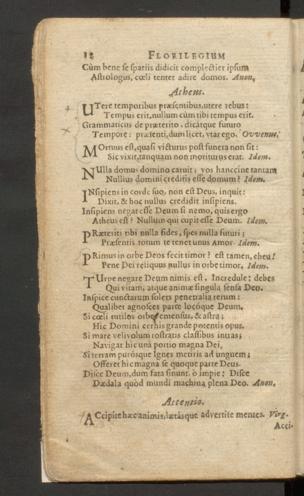 12 FLORILEGIUM
Cùm bene se spatiis didicit complectier ipsum
Astrologus, cœli tentet adire domos. Anon.
Atheus.
UTere temporibus præsentibus, utere rebus:
Tempus erit, nullum cùm tibi tempus erit.
Grammaticus de præterito, dicátque futuro
Tempore: præsenti, dum licet, utar ego. Ovvenus.
MOrtuus est, quasi victurus post funera non sit:
Sic vixit, tanquam non moriturus erat. Idem.
NUlla domus domino caruit; vos hanccine tantam
Nullius domini creditis esse domum? Idem.
INsipiens in corde suo, non est Deus, inquit:
Dixit, & hoc nullus credidit insipiens.
Insipiens negat esse Deum si nemo, quis ergo
Atheus est? Nullum qui cupit esse Deum. Idem.
PRæteriti tibi nulla fides, spes nulla futuri;
Præsentis totum te tenet unus Amor. Idem.
PRimus in orbe Deos fecit timor? est tamen, eheu!
Pene Dei reliquus nullus in orbe timor. Idem.
TUrpe negare Deum nimis est. Incredule: debes
Qui vitam, atque animæ singula sensa Deo.
Inspice cunctarum solers penetralia rerum:
Qualibet agnosces parte locóque Deum.
Si cœli rutilos orbes cementus, & astra;
Hic Domini cernis grande potentis opus.
Si mare velivolum rostratis classibus intras;
Navigat hic unà portio magna Dei,
Si terram purósque Ignes metiris ad unguem;
Offeret hîc magna se quoque parte Deus.
Disce Deum, dum fata sinunt. ô impie; Disce
Dædala quòd mundi machina plena Deo. Anon.
Attentio.
ACcipite hæc animis, lætásque advertite mentes. Virg.
Acci-